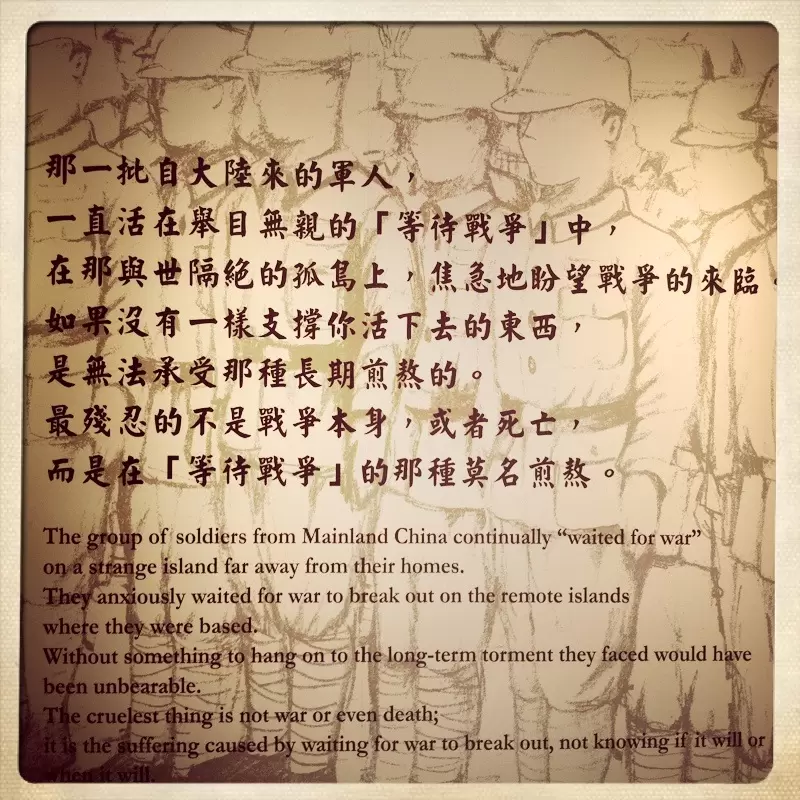 那一批自大陸來的軍人，
一直活在舉目無親的「等待戰爭」中，
在那與世隔絕的孤島上，焦急地盼望戰爭的來臨。
如果沒有一樣支撐你活下去的東西，
是無法承受那種長期煎熬的。
最殘忍的不是戰爭本身，或者死亡，
而是在「等待戰爭」的那種莫名煎熬。
The group of soldiers from Mainland China continually “waited for war”
on a strange island far away from their homes.
They anxiously waited for war to break out on the remote islands
where they were based.
Without something to hang on to the long-term torment they faced would have
been unbearable.
The cruelest thing is not war or even death;
it is the suffering caused by waiting for war to break out, not knowing if it will or
when it will.